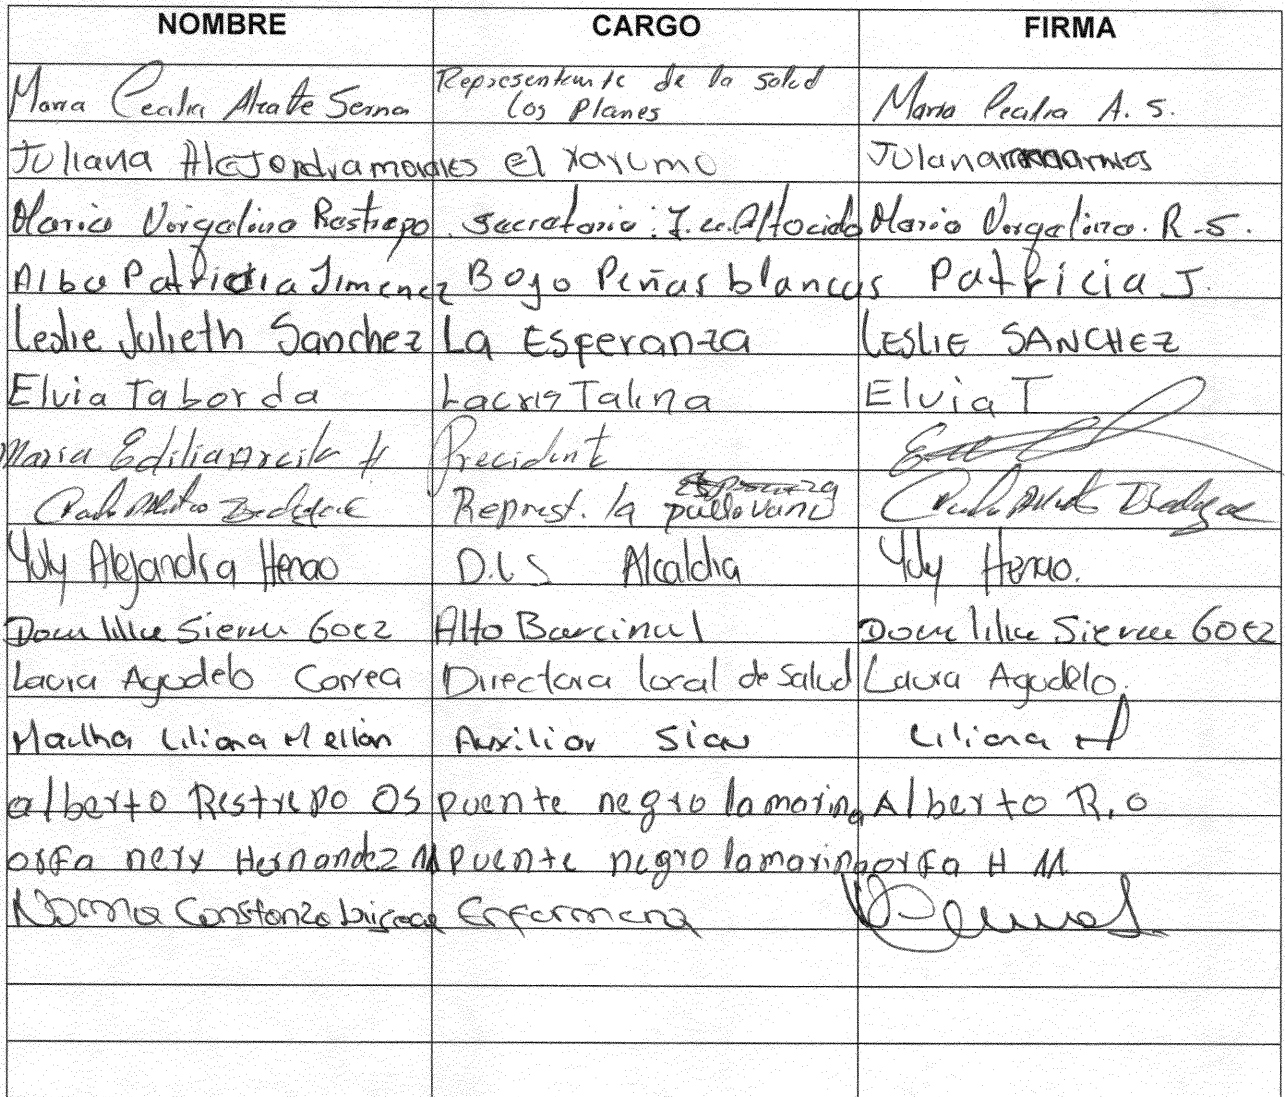 NOMBRE CARGO FIRMA
Maria Cecilia Alzate Serna Representante de la salud Los Planes Maria Cecilia A. S.
Juliana Alejandra morales el Yarumo
Maria Virgelina Restrepo. Secretaria: J.a.c. Alto cielo Maria Virgelina. R.S.
Alba Patricia Jimenez Bajo Peñas blancas Patricia J.
Leslie Julieth Sanchez La Esperanza LESLIE SANCHEZ
Elvia Taborda Lacris Talina Elvia T
Maria Edilia Arcila H Precidente
Represt. la
Yuly Alejandra Henao D.L.S Alcaldia Yuly Henao.
Sierra Goez Alto Barcinal Sierra Goez
Laura Agudelo Correa Directora local de Salud Laura Agudelo.
Martha Liliana Mellan Auxiliar Siau Liliana M
alberto Restrepo OS puente negro la marina Alberto R.O
orfa nery Hernandez M puente negro la marina orfa H M
Norma Constanza Enfermera